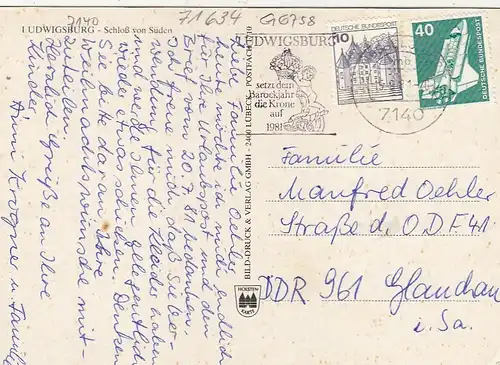 7140
71634
GG758
LUDWIGSBURG - Schloß von Süden
LUDWIGSBURG
setzt dem
Barockjahr
die Krone
auf
1981
7140
10
DEUTSCHE BUNDESPOST
40
DEUTSCHE BUNDESPOST
BILD-DRUCK & VERLAG GMBH · 2400 LÜBECK · POSTFACH 1710
HOLSTEN
KARTE
Liebe Familie Oehler
heute möchte ich mich endlich
für Ihre Urlaubspost und den
Brief vom 20.7.81 bedanken.
Ich freue mich daß Sie Ver-
wendung für die Kleider haben
und werde Ihnen gelegentlich
wieder etwas schicken. Denken
Sie bitte daran Ihre
Weihnachtswünsche mit-
zuteilen.
Herzliche Grüße an Ihre
Kinder
Ihre Krogner u. Familie
Familie
Manfred Oehler
Straße d. ODF 41
DDR 961 Glauchau
i. Sa.